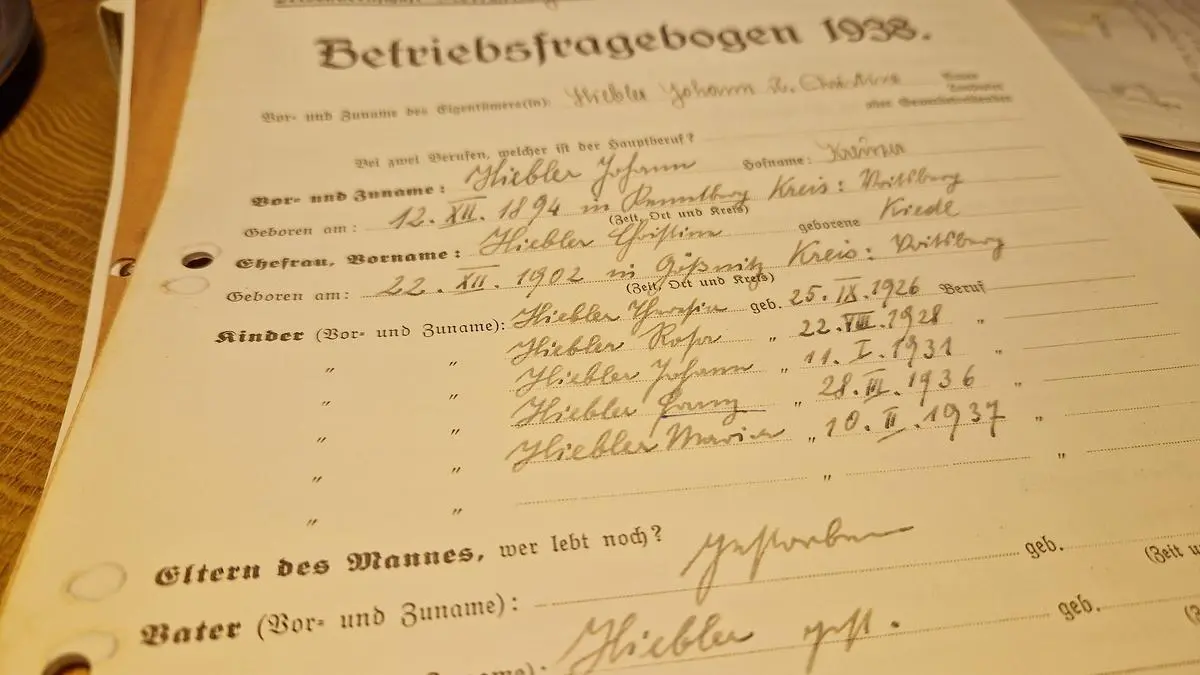 Betriebsfragebogen 1938.
Vor- und Zuname des Eigentümers(in): Hiebler Johann u. Christine
oder Gewerbetreibender
Bei zwei Berufen, welcher ist der Hauptberuf?
Vor- und Zuname: Hiebler Johann Hofname:
Geboren am: 12. XII. 1894 in Kreis: Voitsberg
(Zeit, Ort und Kreis)
Ehefrau, Vorname: Hiebler Christine geborene Kiedl
Geboren am: 22. XII. 1902 in Gößnitz Kreis: Voitsberg
(Zeit, Ort und Kreis)
Kinder (Vor- und Zuname): Hiebler Theresia geb. 25. IX. 1926 Beruf
" " Hiebler Rosa " 22. VIII. 1928 "
" " Hiebler Johann " 11. I. 1931 "
" " Hiebler Franz " 28. III. 1936 "
" " Hiebler Maria " 10. II. 1937 "
" " " "
Eltern des Mannes, wer lebt noch? gestorben geb. (Zeit u
Vater (Vor- und Zuname): Hiebler gest. geb.